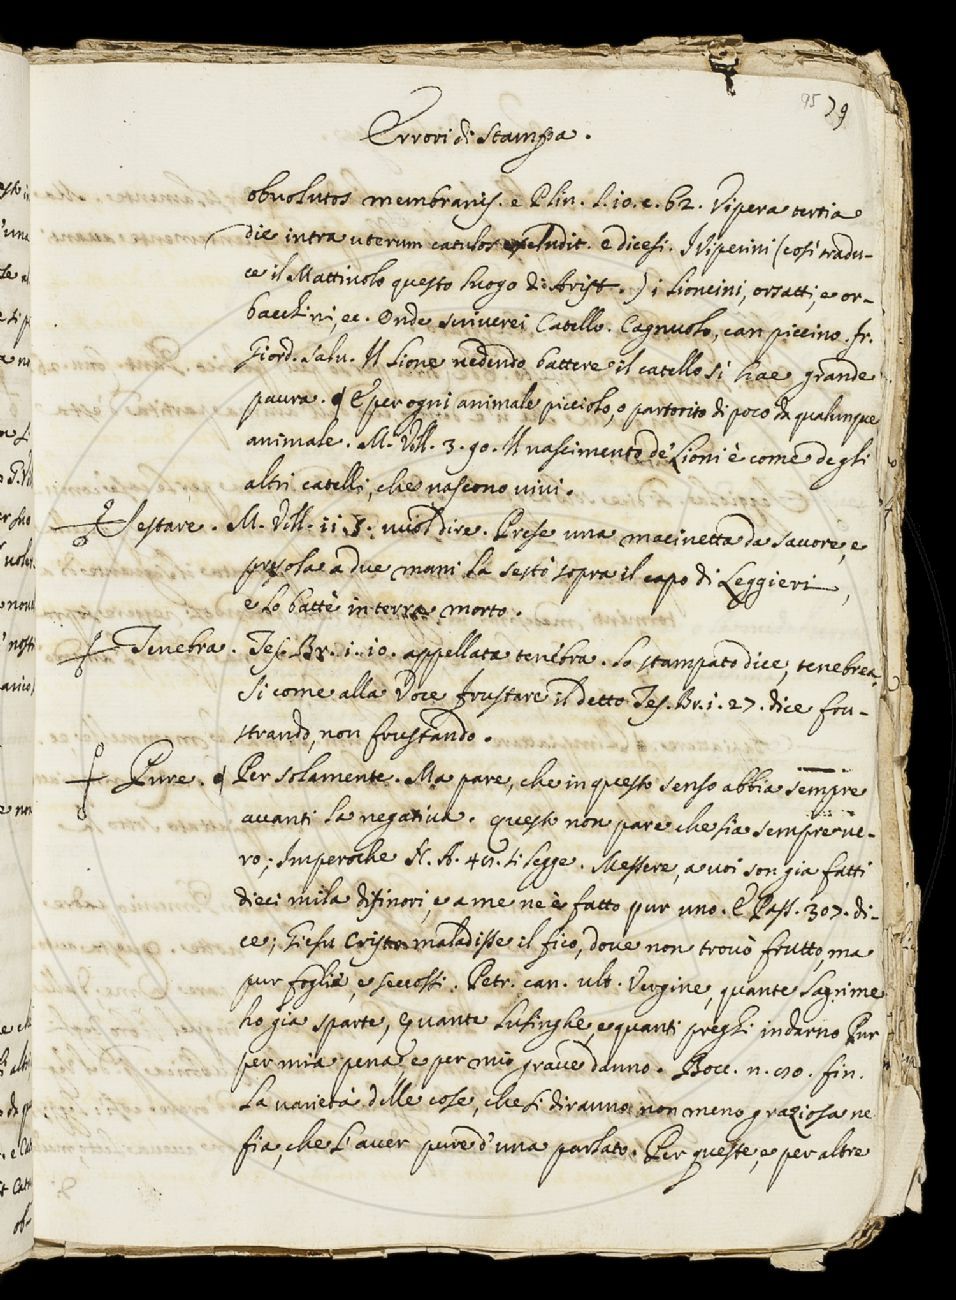 95 79
Errori di stampa.
obvolutos membranis. e Plin. l. 10. c. 62. Vipera tertia
die intra uterum catulos excludit. e dicesi. I Viperini (così tradu-
ce il Mattiuolo questo luogo di Arist.) i lioncini, orsatti, e or-
bacchini, ec. Onde scriverei Catello. Cagnuolo, can piccino. fr.
Giord. Salv. Il lione vedendo battere il catello si hae grande
paura. E per ogni animale picciolo, o partorito di poco da qualunque
animale. M. Vill. 3. 90. Il nascimento de' Lioni è come degli
altri catelli, che nascono vivi.
Sestare. M. Vill. 11. 3. vuol dire. Prese una macinetta da savore, e
presola a due mani la sestò sopra il capo di Leggieri,
e lo battè in terra morto.
Tenebra. Tes. Br. 1. 10. appellata tenebra. Lo stampato dice, tenebrea,
Si come alla Voce frustare il detto Tes. Br. 1. 27. dice fru-
strando, non frustando.
Pure. Per solamente. Ma pare, che in questo senso abbia sempre
avanti la negativa. questo non pare che sia sempre ve-
ro; Imperoche N. A. 41. si legge. Messere, a voi son già fatti
dieci mila disinori, e a me ne è fatto pur uno. E Pass. 307. di-
ce; Giesu Cristo maladisse il fico, dove non trovò frutto, ma
pur foglie, e seccossi. Petr. can. ult. Vergine, quante lagrime
ho già sparte, quante lusinghe, e quanti preghi indarno Pur
per mia pena, e per mio grave danno. Bocc. n. fin.
La varietà delle cose, che si diranno non meno graziosa ne
fia, che l'aver pure d'una parlato. Per queste, e per altre